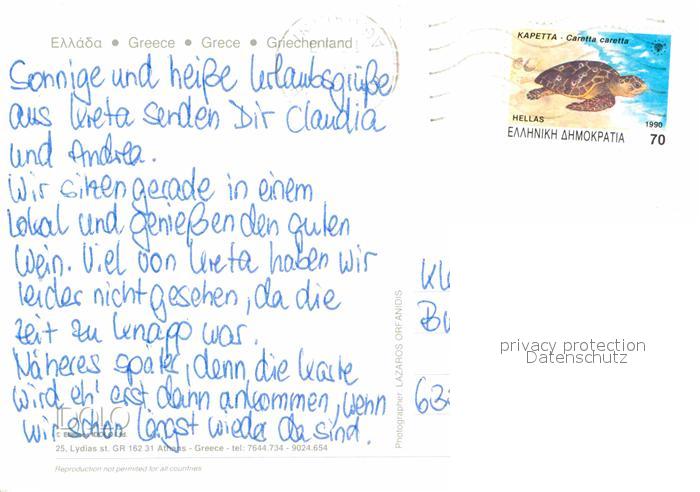 Ελλάδα • Greece • Grece • Griechenland
Sonnige und heiße Urlaubsgrüße
aus Kreta senden Dir Claudia
und Andrea.
Wir sitzen gerade in einem
Lokal und genießen den guten
Wein. Viel von Kreta haben wir
leider nicht gesehen, da die
Zeit zu knapp war.
Näheres später, denn die Karte
wird eh' erst dann ankommen, wenn
wir schon längst wieder da sind.
25, Lydias st. GR 162 31 Athens - Greece - tel: 7644.734 - 9024.654
Reproduction not permited for all countries
Photographer LAZAROS ORFANIDIS
ΚΑΡΕΤΤΑ - Caretta caretta
HELLAS
1990
ΕΛΛΗΝΙΚΗ ΔΗΜΟΚΡΑΤΙΑ 70
privacy protection
Datenschutz